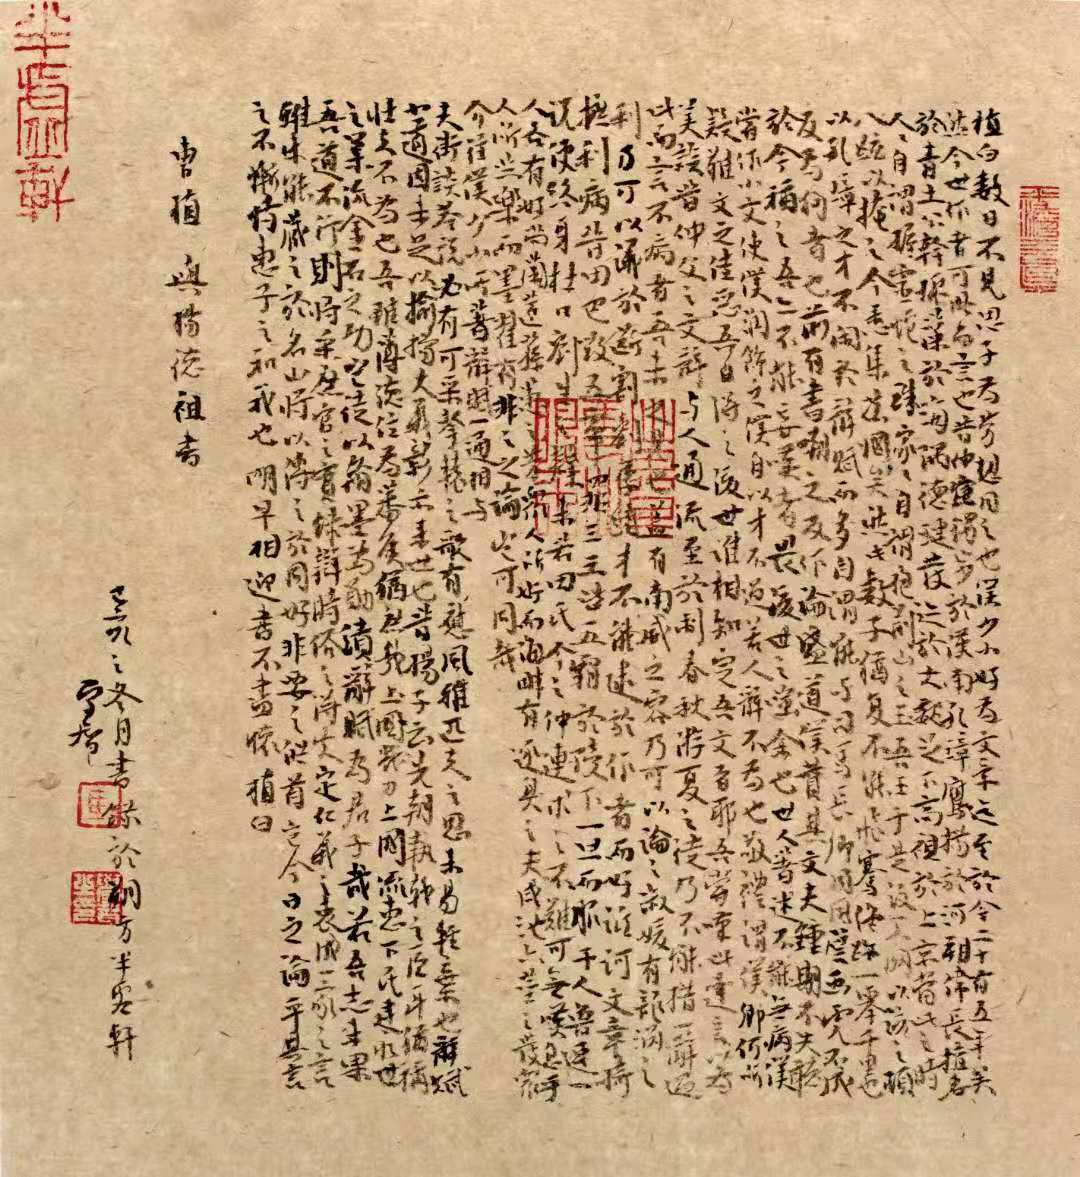 植白數日不見思子為勞想同之也僕少小好為文章迄至於今二十有五年矣
然今世作者可略而言也昔仲宣獨步於漢南孔璋鷹揚於河朔偉長擅名
於青土公幹振藻於海隅德璉發跡於大魏足下高視於上京當此之時
人人自謂握靈蛇之珠家家自謂抱荊山之玉吾王于是設天網以該之頓
八紘以掩之今悉集茲國矣然此數子猶復不能飛騫絕跡一舉千里也
以孔璋之才不閑於辭賦而多自謂能與司馬長卿同風譬畫虎不成
反為狗者也前有書嘲之反作論盛道僕贊其文夫鍾期不失聽
於今稱之吾亦不能妄嘆者畏後世之嗤余也世人著述不能無病僕
嘗作小文使僕潤飾之僕自以才不過若人辭不為也敬禮謂僕卿何所
疑難文之佳惡吾自得之後世誰相知定吾文者耶吾嘗嘆此達言以為
美談昔仲父之文辭與人通流至於制春秋游夏之徒乃不能措一辭過
此而言不病者吾未之見也蓋有南威之容乃可以論之淑媛有龍淵之
利乃可以議於斷割劉季緒才不能逮於作者而好詆訶文章掎
摭利病昔田巴毀五帝罪三王呰五霸於稷下一旦而服千人魯連一
說使終身杜口劉生之辯未若田氏今之仲連求之不難可無嘆息乎
人各有好尚蘭茝蓀蕙之芳眾人所好而海畔有逐臭之夫咸池六莖之發眾
人所共樂而墨翟有非之之論豈可同哉
今往僕少小所著辭賦一通相與
夫街談巷說必有可采擊轅之歌有應風雅匹夫之思未易輕棄也辭賦
小道固未足以揄揚大義彰示來世也昔揚子云先朝執戟之臣耳猶稱
壯夫不為也吾雖薄德位為藩侯猶庶幾戮力上國流惠下民建永世
之業流金石之功豈徒以翰墨為勳績辭賦為君子哉若吾志未果
吾道不行則將采庶官之實錄辯時俗之得失定仁義之衷成一家之言
雖未能藏之於名山將以傳之於同好非要之皓首豈今日之論乎其言
之不慚恃惠子之知我也明早相迎書不盡懷植白
曹植與楊德祖書
之冬月書錄於朔方半客軒